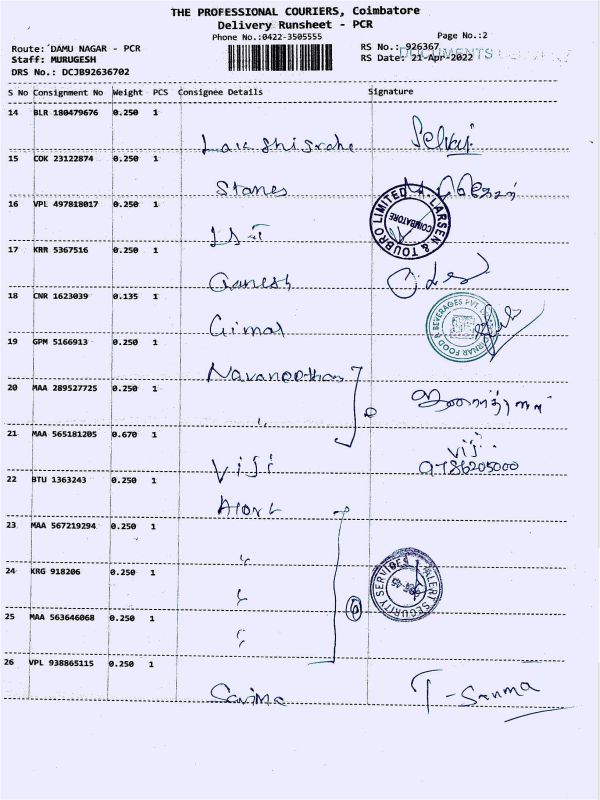 THE PROFESSIONAL COURIERS, Coimbatore
Delivery Runsheet - PCR
Phone No.:0422-3505555
Page No.:2
Route: DAMU NAGAR - PCR
RS No.: 926367
DOCUMENTS
Staff: MURUGESH
RS Date: 21-Apr-2022
DRS No.: DCJB92636702
S No Consignment No Weight PCS Consignee Details Signature
14 BLR 180479676 0.250 1
Selvaj
15 COK 23122874 0.250 1
Stanes
16 VPL 497818017 0.250 1
LARSEN & TOUBRO LIMITED
COIMBATORE
17 KRR 5367516 0.250 1
Ganesh
18 CNR 1623039 0.135 1
Girnar
GIRNAR FOOD & BEVERAGES PVT.
19 GPM 5166913 0.250 1
Navaneethan
20 MAA 289527725 0.250 1
"
21 MAA 565181205 0.670 1
Viji
Viji
9786205000
22 BTU 1363243 0.250 1
Alert
23 MAA 567219294 0.250 1
"
24 KRG 918206 0.250 1
"
ALERT SECURITY SERVICES
25 MAA 563646068 0.250 1
"
26 VPL 938865115 0.250 1